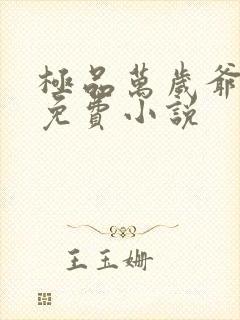 極品萬歲爺
免費小說
王玉姍